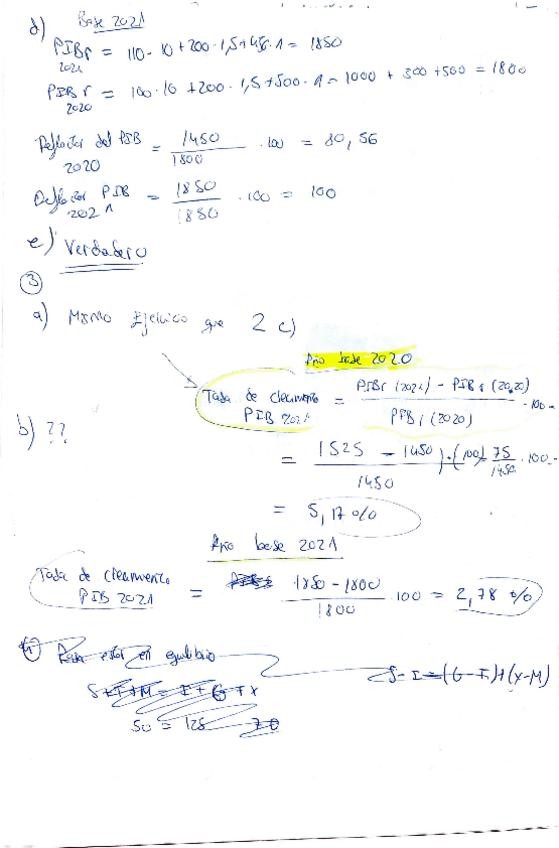 d) Base 2021
PIBr 2021 = 110·10+200·1,5+450·1 = 1850
PIBr 2020 = 100·10+200·1,5+500·1 = 1000 + 300 + 500 = 1800
Deflactor del PIB 2020 = 1450/1800 ·100 = 80,56
Deflactor PIB 2021 = 1850/1850 ·100 = 100
e) Verdadero
3
a) Mismo Ejercicio que 2 c)
Año base 2020
Tasa de crecimiento PIB 2021 = PIBr (2021) - PIBr (2020) / PIBr (2020) ·100
b) ??
= 1525 - 1450 / 1450 ·(100) = 75/1450 ·100
= 5,17 %
Año base 2021
Tasa de crecimiento PIB 2021 = 1850 - 1800 / 1800 ·100 = 2,78 %
4 Para estar en equilibrio
S-I=(G-T)+(X-M)
S+T+M = I+G+X
50 = 125